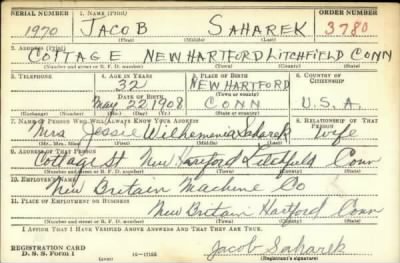 SERIAL NUMBER 1. NAME (Print) ORDER NUMBER
1970 JACOB SAHAREK 3780
(First) (Middle) (Last)
2. ADDRESS (Print)
COTTAGE NEW HARTFORD LITCHFIELD CONN
(Number and street or R. F. D. number) (Town) (County) (State)
3. TELEPHONE 4. AGE IN YEARS 5. PLACE OF BIRTH 6. COUNTRY OF CITIZENSHIP
32 NEW HARTFORD
DATE OF BIRTH (Town or county)
May 22 1908 CONN U.S.A.
(Exchange) (Number) (Mo.) (Day) (Yr.) (State or country)
7. NAME OF PERSON WHO WILL ALWAYS KNOW YOUR ADDRESS 8. RELATIONSHIP OF THAT PERSON
Mrs Jessie Wilhemenia Saharek wife
(Mr., Mrs., Miss) (First) (Middle) (Last)
9. ADDRESS OF THAT PERSON
Cottage St New Hartford Litchfield Conn
(Number and street or R. F. D. number) (Town) (County) (State)
10. EMPLOYER'S NAME
New Britain Machine Co
11. PLACE OF EMPLOYMENT OR BUSINESS
New Britain Hartford Conn
(Number and street or R. F. D. number) (Town) (County) (State)
I AFFIRM THAT I HAVE VERIFIED ABOVE ANSWERS AND THAT THEY ARE TRUE.
REGISTRATION CARD
D. S. S. Form 1 Jacob Saharek
(Registrant's signature)